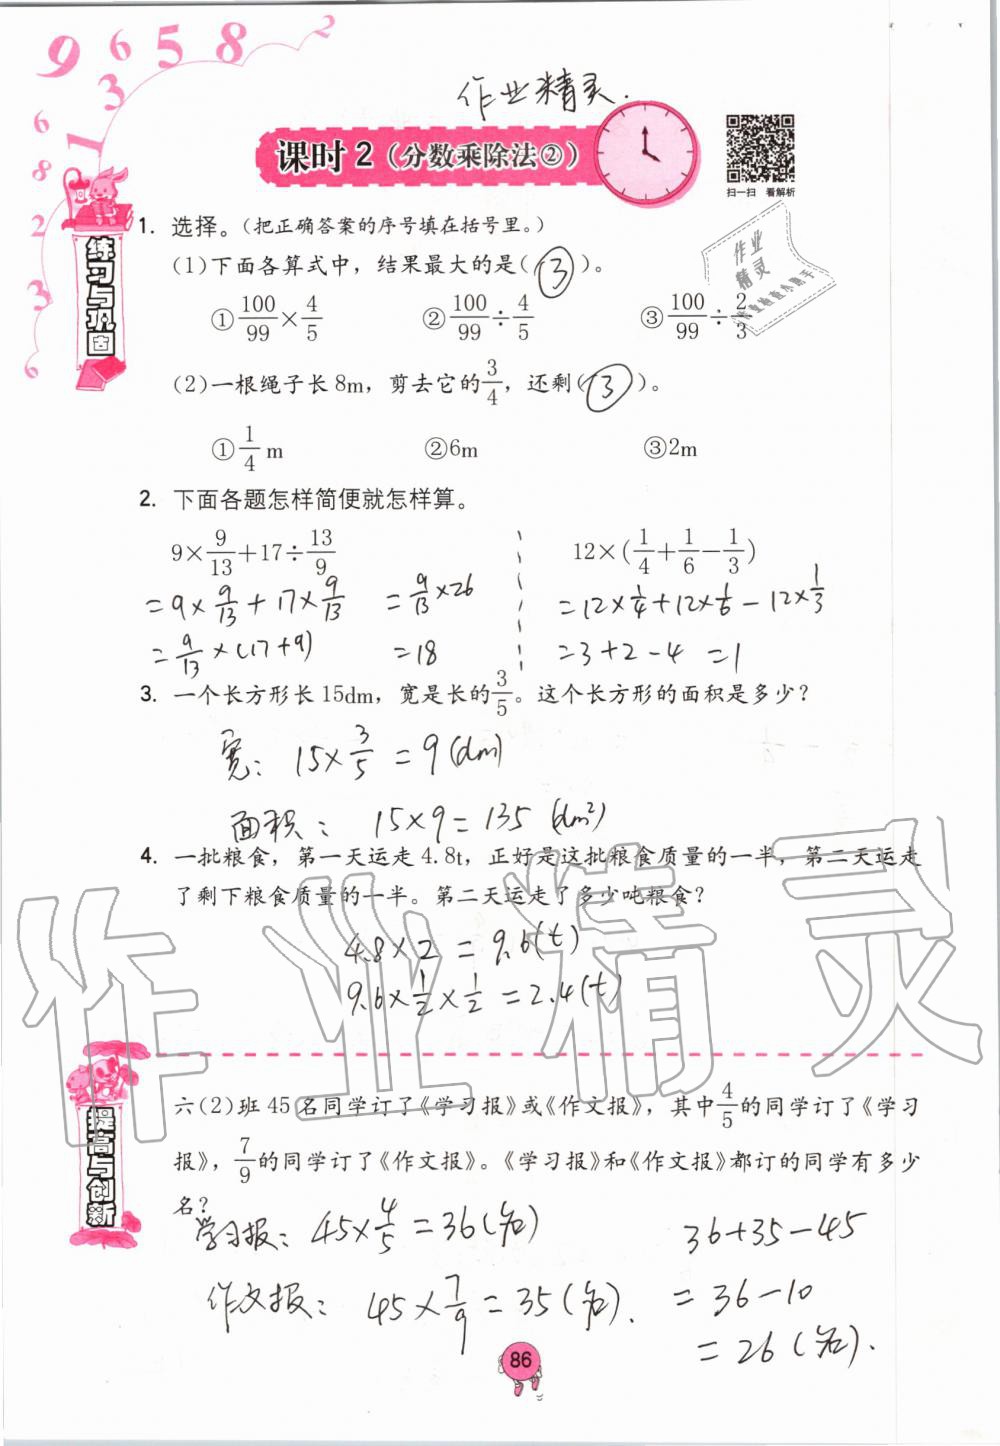 9 6 5 8 2
作业精灵.
课时2（分数乘除法②）
扫一扫 看解析
练习与巩固
作业
精灵
1. 选择。(把正确答案的序号填在括号里。)
(1)下面各算式中，结果最大的是( ③ )。
① 100/99 × 4/5 ② 100/99 ÷ 4/5 ③ 100/99 ÷ 2/3
(2)一根绳子长8m，剪去它的3/4，还剩( ③ )。
① 1/4 m ②6m ③2m
2. 下面各题怎样简便就怎样算。
9×9/13+17÷13/9 12×(1/4+1/6-1/3)
=9×9/13+17×9/13 =9/13×26 =12×1/4+12×1/6-12×1/3
=9/13×(17+9) =18 =3+2-4 =1
3. 一个长方形长15dm，宽是长的3/5。这个长方形的面积是多少？
宽: 15×3/5=9(dm)
面积: 15×9=135(dm²)
4. 一批粮食，第一天运走4.8t，正好是这批粮食质量的一半，第二天运走
了剩下粮食质量的一半。第二天运走了多少吨粮食？
4.8×2=9.6(t)
9.6×1/2×1/2=2.4(t)
作业精灵
提高与创新
六(2)班45名同学订了《学习报》或《作文报》，其中4/5的同学订了《学习
报》，7/9的同学订了《作文报》。《学习报》和《作文报》都订的同学有多少
名？
学习报: 45×4/5=36(名) 36+35-45
作文报: 45×7/9=35(名). =36-10
=26(名).
86